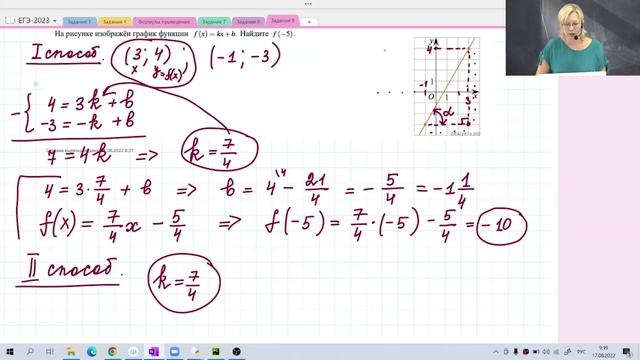 ЕГЭ-2023
Задание 1 Задание 4 Формулы приведения Задание 7 Задание 8 Задание 9
На рисунке изображён график функции f(x) = kx + b. Найдите f(−5).
I способ. (3; 4) (−1; −3)
x y=f(x)
4 = 3k + b
−3 = −k + b
7 = 4k => k = 7/4
4 = 3·7/4 + b => b = 4 − 21/4 = −5/4 = −1 1/4
f(x) = 7/4 x − 5/4 => f(−5) = 7/4·(−5) − 5/4 = −10
II способ. k = 7/4
y
4
1
−1 O 1 3 x
α
РУС
9:35
17.08.2022